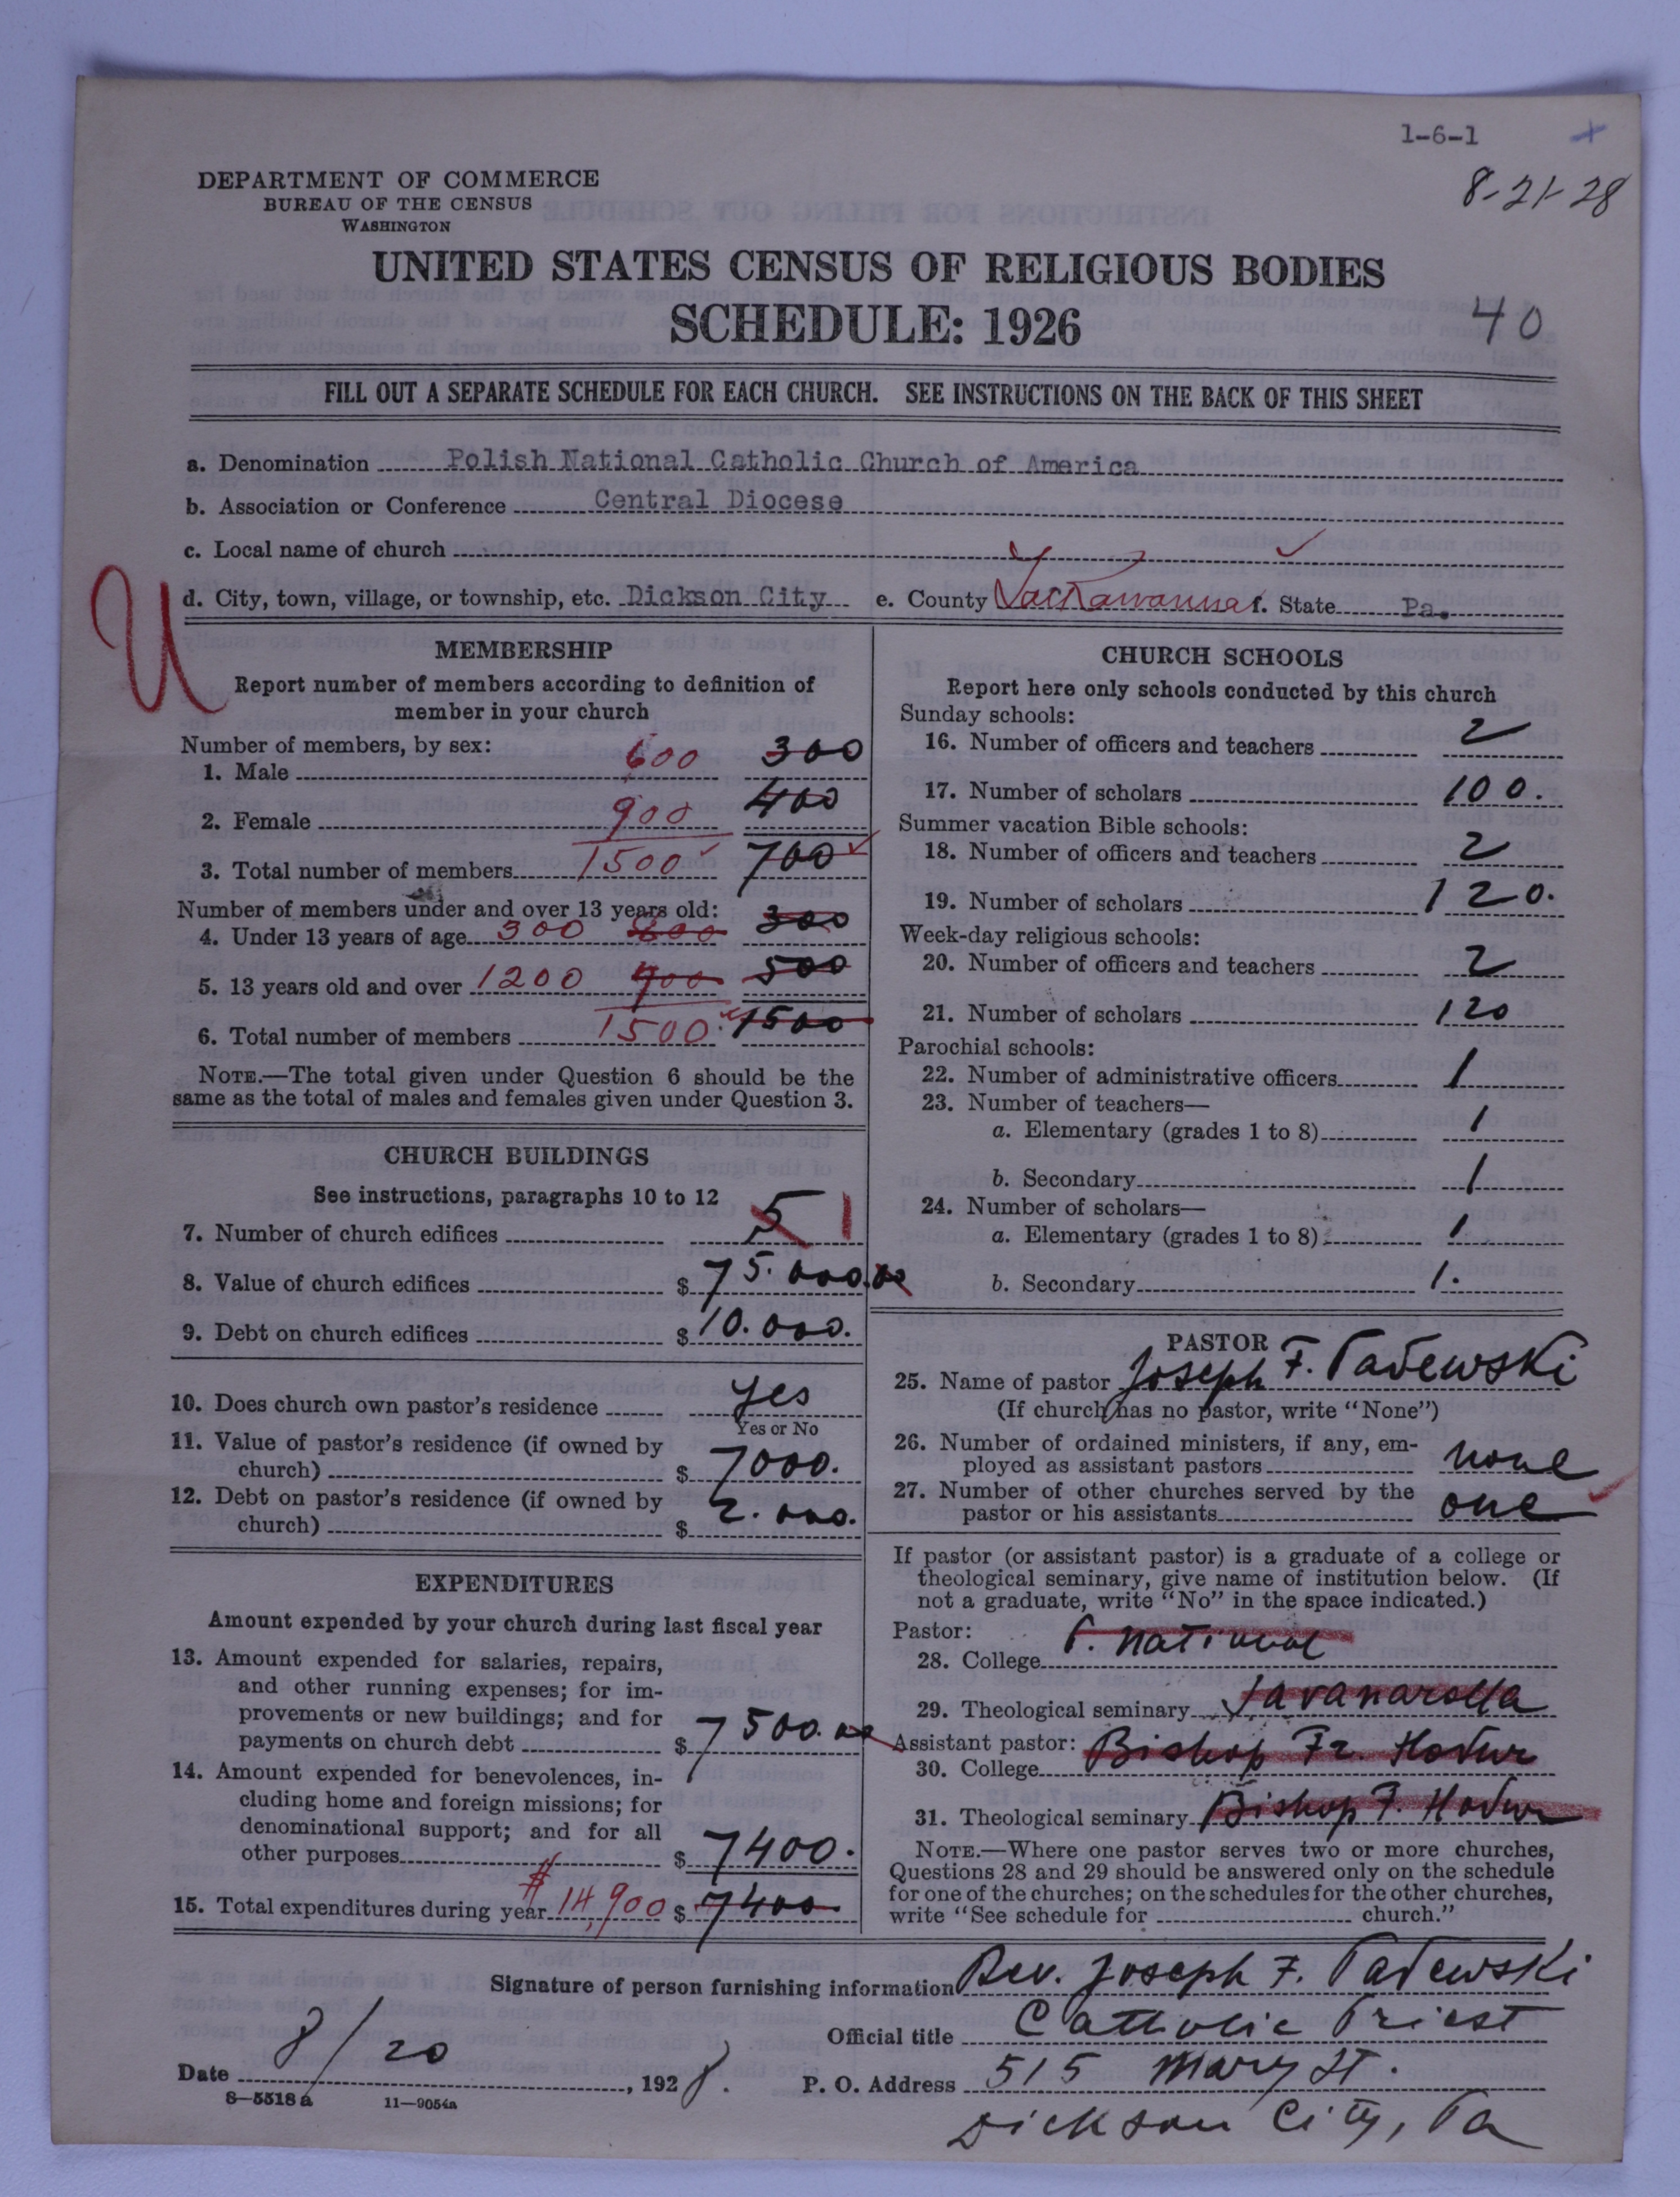 1-6-1 +
8-21-28
DEPARTMENT OF COMMERCE
BUREAU OF THE CENSUS
WASHINGTON
UNITED STATES CENSUS OF RELIGIOUS BODIES
SCHEDULE: 1926
40
FILL OUT A SEPARATE SCHEDULE FOR EACH CHURCH. SEE INSTRUCTIONS ON THE BACK OF THIS SHEET
a. Denomination Polish National Catholic Church of America
b. Association or Conference Central Diocese
c. Local name of church
U
d. City, town, village, or township, etc. Dickson City e. County Lackawanna f. State Pa.
MEMBERSHIP
Report number of members according to definition of
member in your church
Number of members, by sex:
1. Male 600 300
2. Female 900 400
3. Total number of members 1500 700
Number of members under and over 13 years old:
4. Under 13 years of age 300 300
5. 13 years old and over 1200 900 500
6. Total number of members 1500 1500
NOTE.—The total given under Question 6 should be the
same as the total of males and females given under Question 3.
CHURCH BUILDINGS
See instructions, paragraphs 10 to 12
7. Number of church edifices 5 1
8. Value of church edifices $ 75.000.00
9. Debt on church edifices $ 10.000.
10. Does church own pastor's residence yes
Yes or No
11. Value of pastor's residence (if owned by
church) $ 7000.
12. Debt on pastor's residence (if owned by
church) $ 2.000.
EXPENDITURES
Amount expended by your church during last fiscal year
13. Amount expended for salaries, repairs,
and other running expenses; for im-
provements or new buildings; and for
payments on church debt $ 7500.00
14. Amount expended for benevolences, in-
cluding home and foreign missions; for
denominational support; and for all
other purposes $ 7400.
15. Total expenditures during year $ 14,900 $ 7400
CHURCH SCHOOLS
Report here only schools conducted by this church
Sunday schools:
16. Number of officers and teachers 2
17. Number of scholars 100.
Summer vacation Bible schools:
18. Number of officers and teachers 2
19. Number of scholars 120.
Week-day religious schools:
20. Number of officers and teachers 2
21. Number of scholars 120
Parochial schools:
22. Number of administrative officers 1
23. Number of teachers—
a. Elementary (grades 1 to 8) 1
b. Secondary 1
24. Number of scholars—
a. Elementary (grades 1 to 8) 1
b. Secondary 1.
PASTOR
25. Name of pastor Joseph F. Padewski
(If church has no pastor, write "None")
26. Number of ordained ministers, if any, em-
ployed as assistant pastors none
27. Number of other churches served by the
pastor or his assistants one
If pastor (or assistant pastor) is a graduate of a college or
theological seminary, give name of institution below. (If
not a graduate, write "No" in the space indicated.)
Pastor:
28. College P. National
29. Theological seminary Savanarolla
Assistant pastor:
30. College Bishop Fr. Hodur
31. Theological seminary Bishop F. Hodur
NOTE.—Where one pastor serves two or more churches,
Questions 28 and 29 should be answered only on the schedule
for one of the churches; on the schedules for the other churches,
write "See schedule for church."
Signature of person furnishing information Rev. Joseph F. Padewski
Official title Catholic Priest
Date 8/20, 1928. P. O. Address 515 Mary St.
Dickson City, Pa
8—5518a 11—9054a